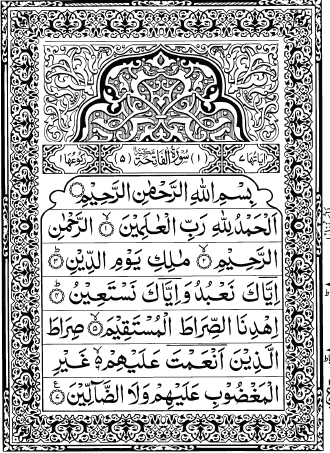 اٰیاتها ٧ (١) سُوْرَةُ الْفَاتِحَةِ مَكِّيَّةٌ (٥) رکوعها ١
بِسْمِ اللّٰهِ الرَّحْمٰنِ الرَّحِيْمِ
اَلْحَمْدُ لِلّٰهِ رَبِّ الْعٰلَمِيْنَ ۙ﴿١﴾ الرَّحْمٰنِ
الرَّحِيْمِ ۙ﴿٢﴾ مٰلِكِ يَوْمِ الدِّيْنِ ؕ﴿٣﴾
اِيَّاكَ نَعْبُدُ وَاِيَّاكَ نَسْتَعِيْنُ ؕ﴿٤﴾
اِهْدِنَا الصِّرَاطَ الْمُسْتَقِيْمَ ۙ﴿٥﴾ صِرَاطَ
الَّذِيْنَ اَنْعَمْتَ عَلَيْهِمْ ۙ﴿٦﴾ غَيْرِ
الْمَغْضُوْبِ عَلَيْهِمْ وَلَا الضَّآلِّيْنَ ﴿٧﴾